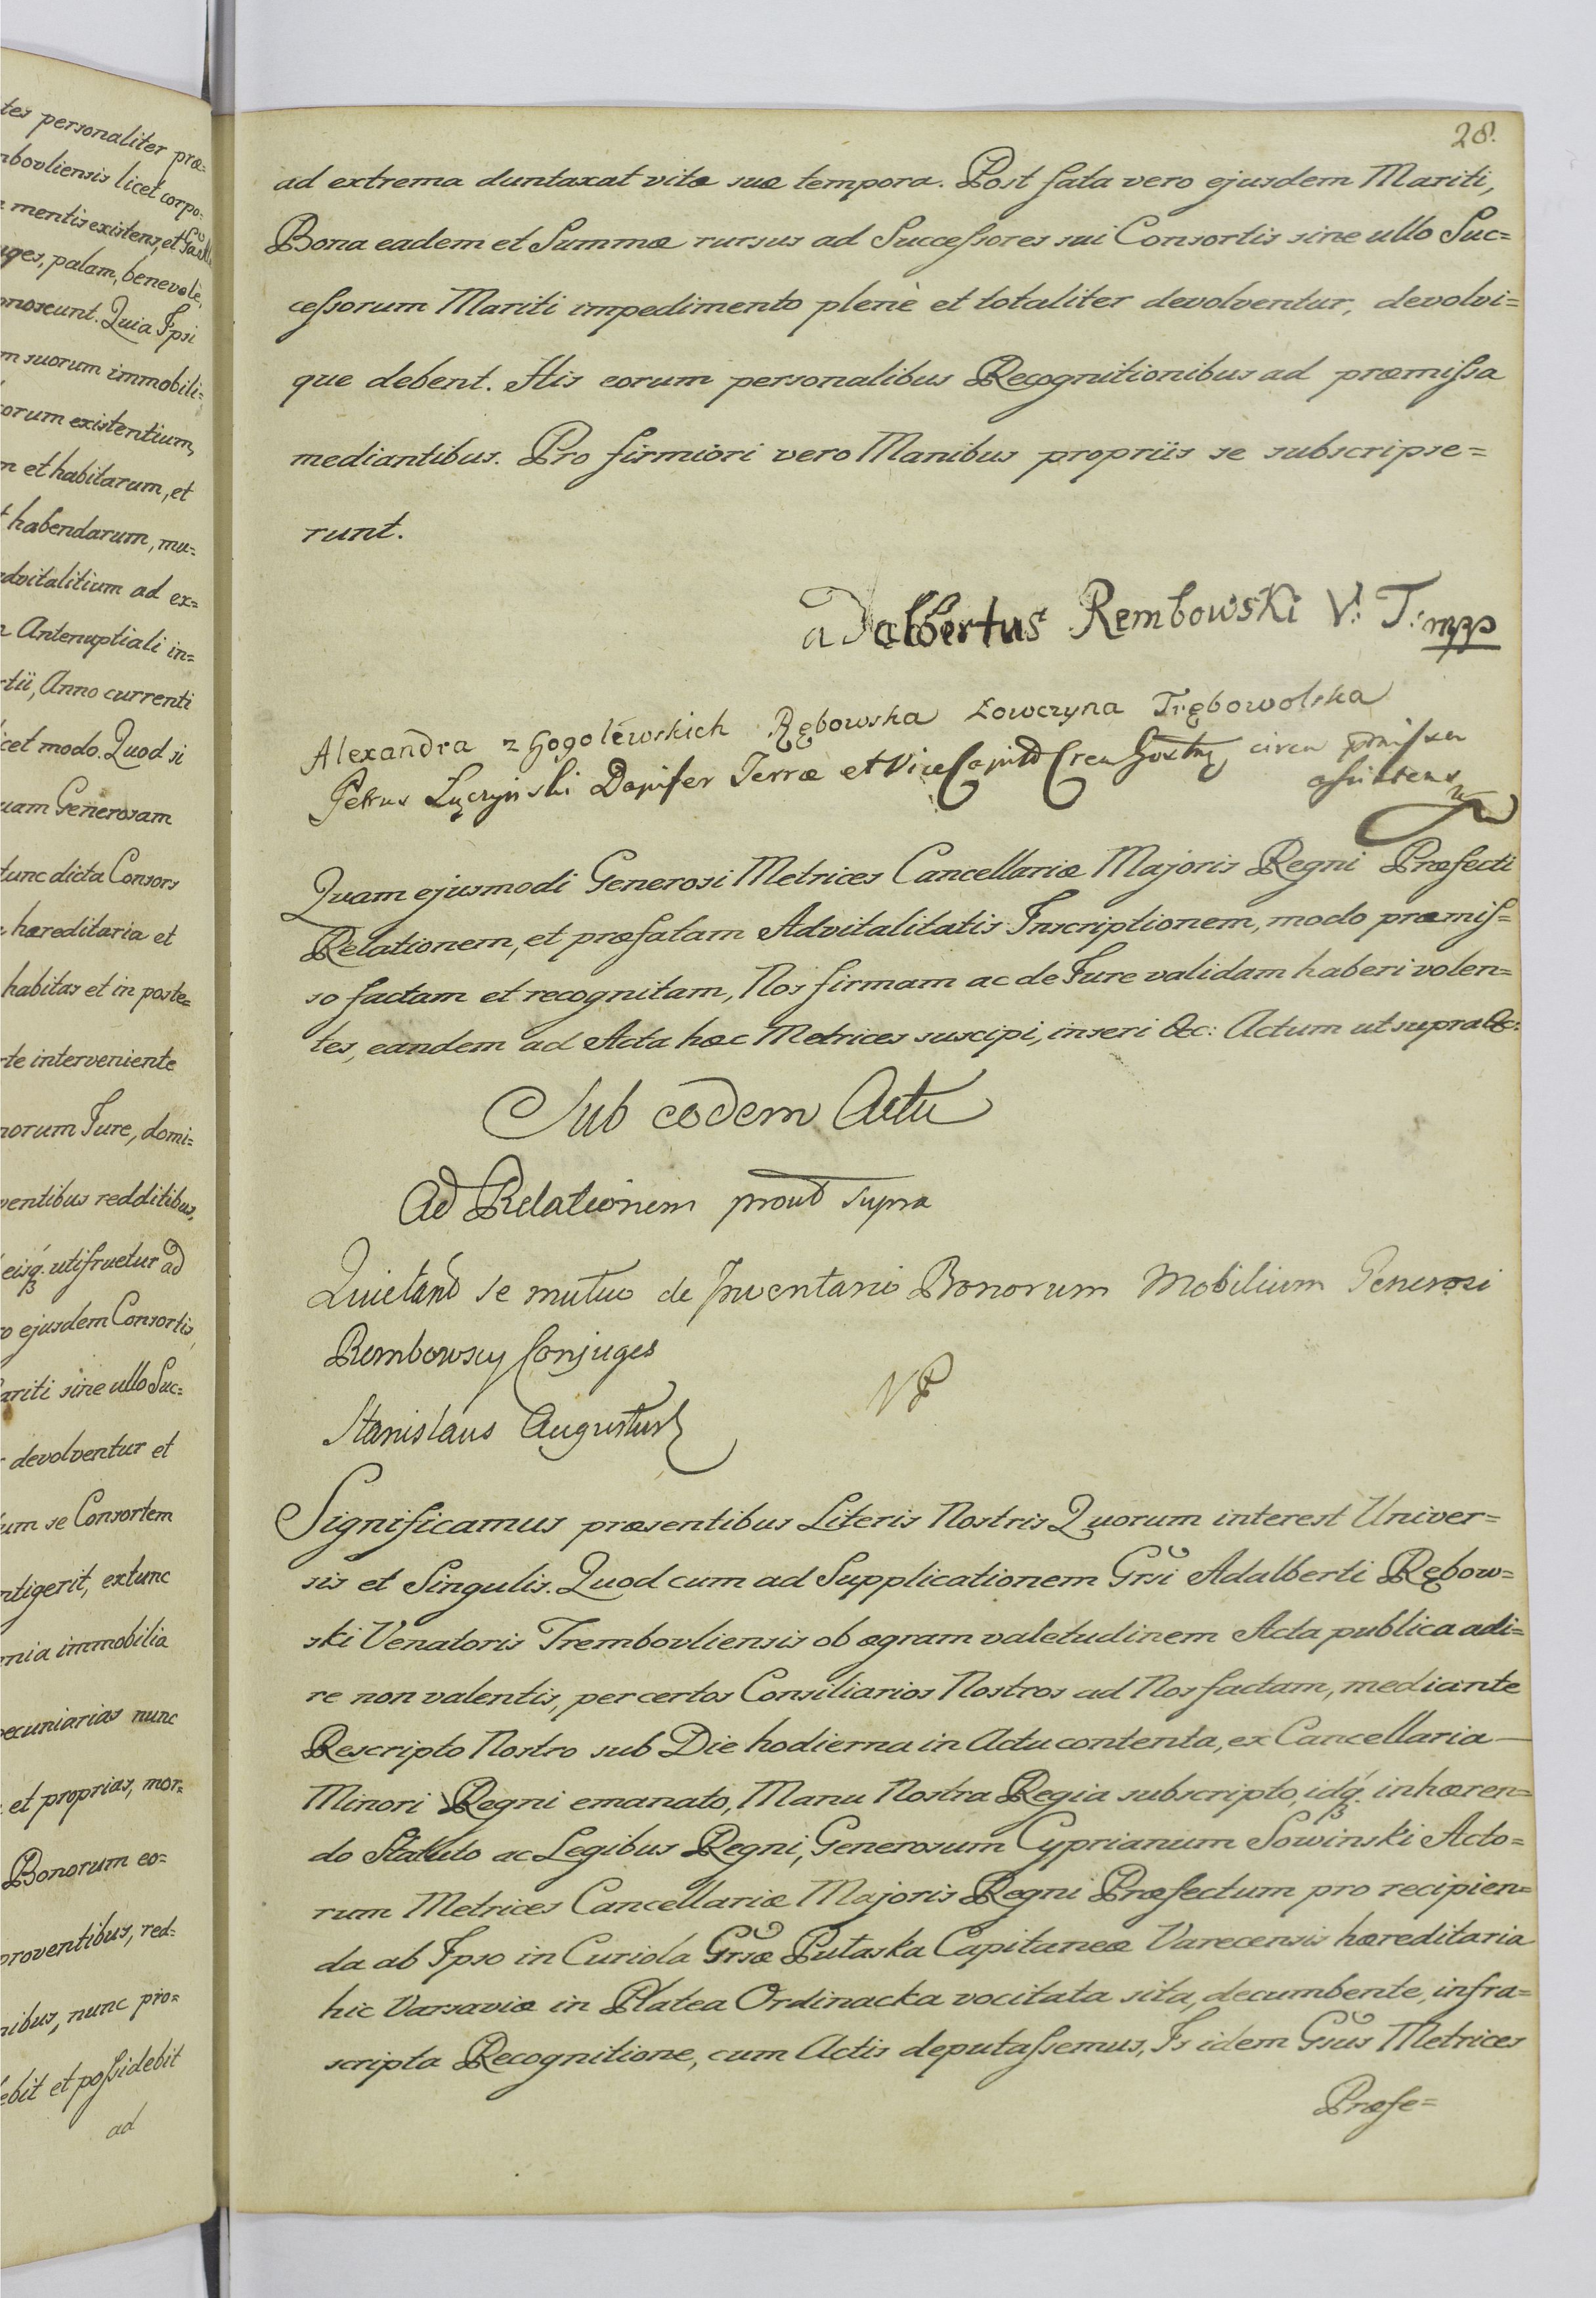 tes personaliter præ=
mbovliensis licet corpo=
mentis existens, et
uges, palam, benevolè,
onoscunt. Quia Ipsi
m suorum immobili=
orum existentium,
m et habitarum, et
t habendarum, mu=
advitalitium ad ex=
Antenuptiali in=
rtii, Anno currenti
licet modo. Quod si
uam Generosam
tunc dicta Consors
hæreditaria et
habitas et in poste=
rte interveniente
norum Jure, domi=
ventibus redditibus,
eisq. utifruetur ad
o ejusdem Consortis,
Mariti sine ullo Suc=
devolventur et
um se Consortem
ntigerit, extunc
mnia immobilia
pecuniarias nunc
et proprias, mor=
Bonorum eo=
proventibus, red=
nibus, nunc pro=
ebit et possidebit
ad
28.
ad extrema duntaxat vitæ suæ tempora. Post fata vero ejusdem Mariti,
Bona eadem et Summæ rursus ad Successores sui Consortis sine ullo Suc=
cessorum Mariti impedimento plenè et totaliter devolventur, devolvi=
que debent. His eorum personalibus Recognitionibus ad præmissa
mediantibus. Pro firmiori vero Manibus propriis se subscripse=
runt.
adalbertus Rembowski V: T: mpp
Alexandra z Gogolewskich Rębowska Łowczyna Trębowolska
Petrus Łączyński Dapifer Terræ et Vice Capit Cren Gostny circa pmissa
assistens
Quam ejusmodi Generosi Metrices Cancellariæ Majoris Regni Præfecti
Relationem, et præfatam Advitalitatis Inscriptionem, modo præmis=
so factam et recognitam, Nos firmam ac de Jure validam haberi volen=
tes, eandem ad Acta hæc Metrices suscipi, inseri &c: Actum ut supra &c:
Sub eodem Actu
Ad Relationem prout supra
Quietant se mutuo de Inventario Bonorum Mobilium Generosi
Rembowscy Conjuges
NP
Stanislaus Augustus
Significamus præsentibus Literis Nostris Quorum interest Univer=
sis et Singulis. Quod cum ad Supplicationem Grsi Adalberti Rębow=
ski Venatoris Trembovliensis ob ægram valetudinem Acta publica adi=
re non valentis, per certos Consiliarios Nostros ad Nos factam, mediante
Rescripto Nostro sub Die hodierna in Actu contenta, ex Cancellaria —
Minori Regni emanato, Manu Nostra Regia subscripto, idq. inhæren=
do Statuto ac Legibus Regni, Generosum Cyprianum Sowinski Acto=
rum Metrices Cancellariæ Majoris Regni Præfectum pro recipien=
da ab Ipso in Curiola Grsæ Putaska Capitaneæ Varecensis hæreditaria
hic Varsaviæ in Platea Ordinacka vocitata sita, decumbente, infra=
scripta Recognitione, cum Actis deputassemus, Is idem Gsus Metrices
Præfe=